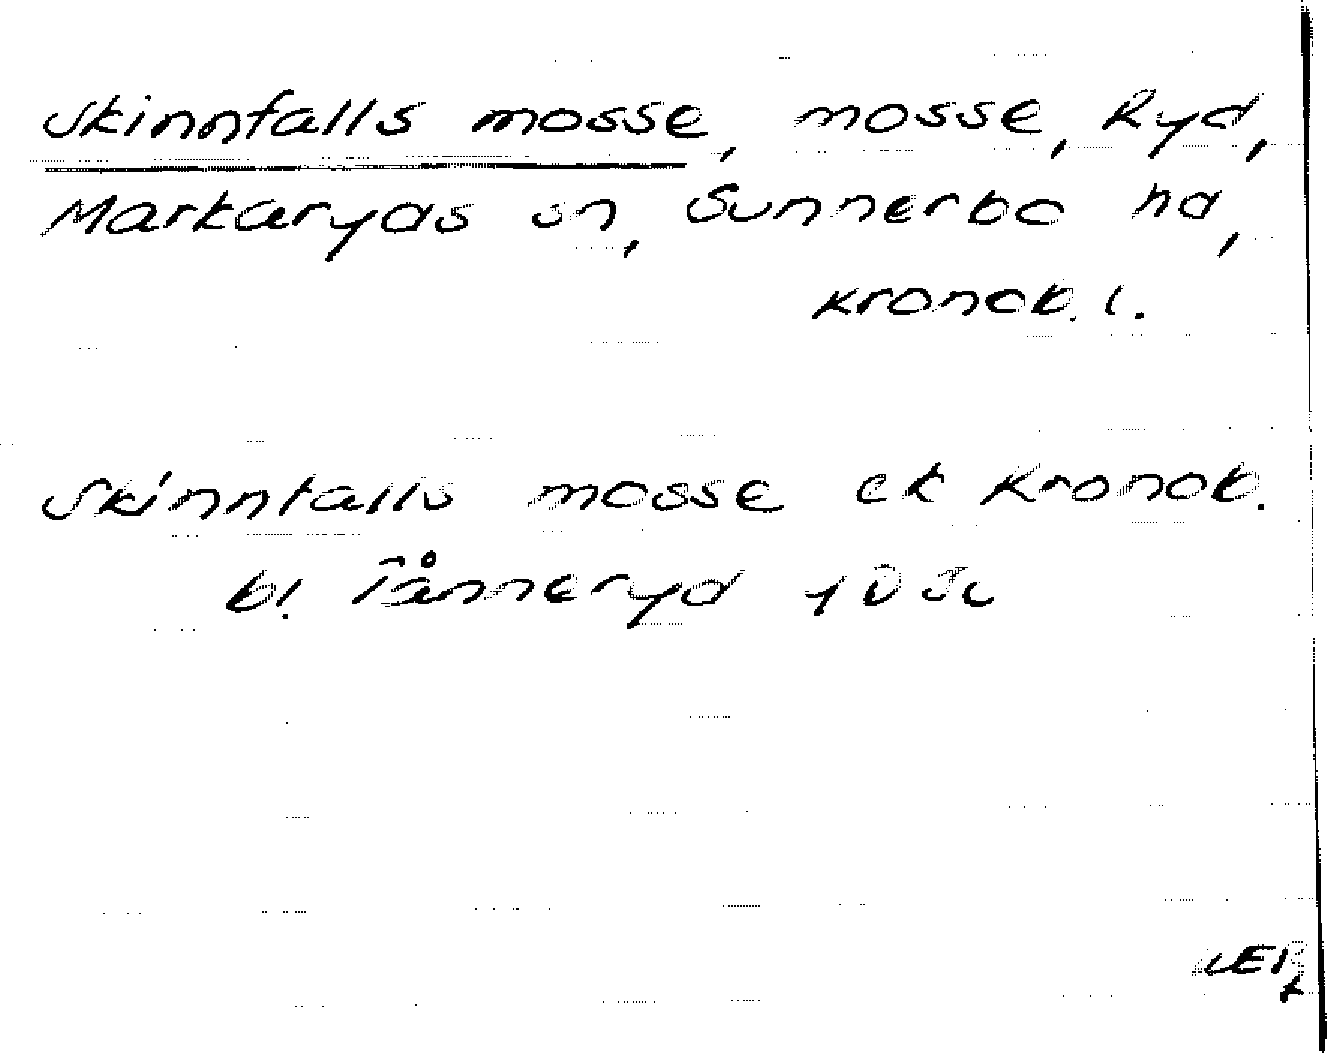 Skinnfalls mosse, mosse, Ryd,
Markaryds sn, Sunnerbo hd,
Kronob. l.
Skinnfalls mosse ek Kronob.
bl. Tånneryd